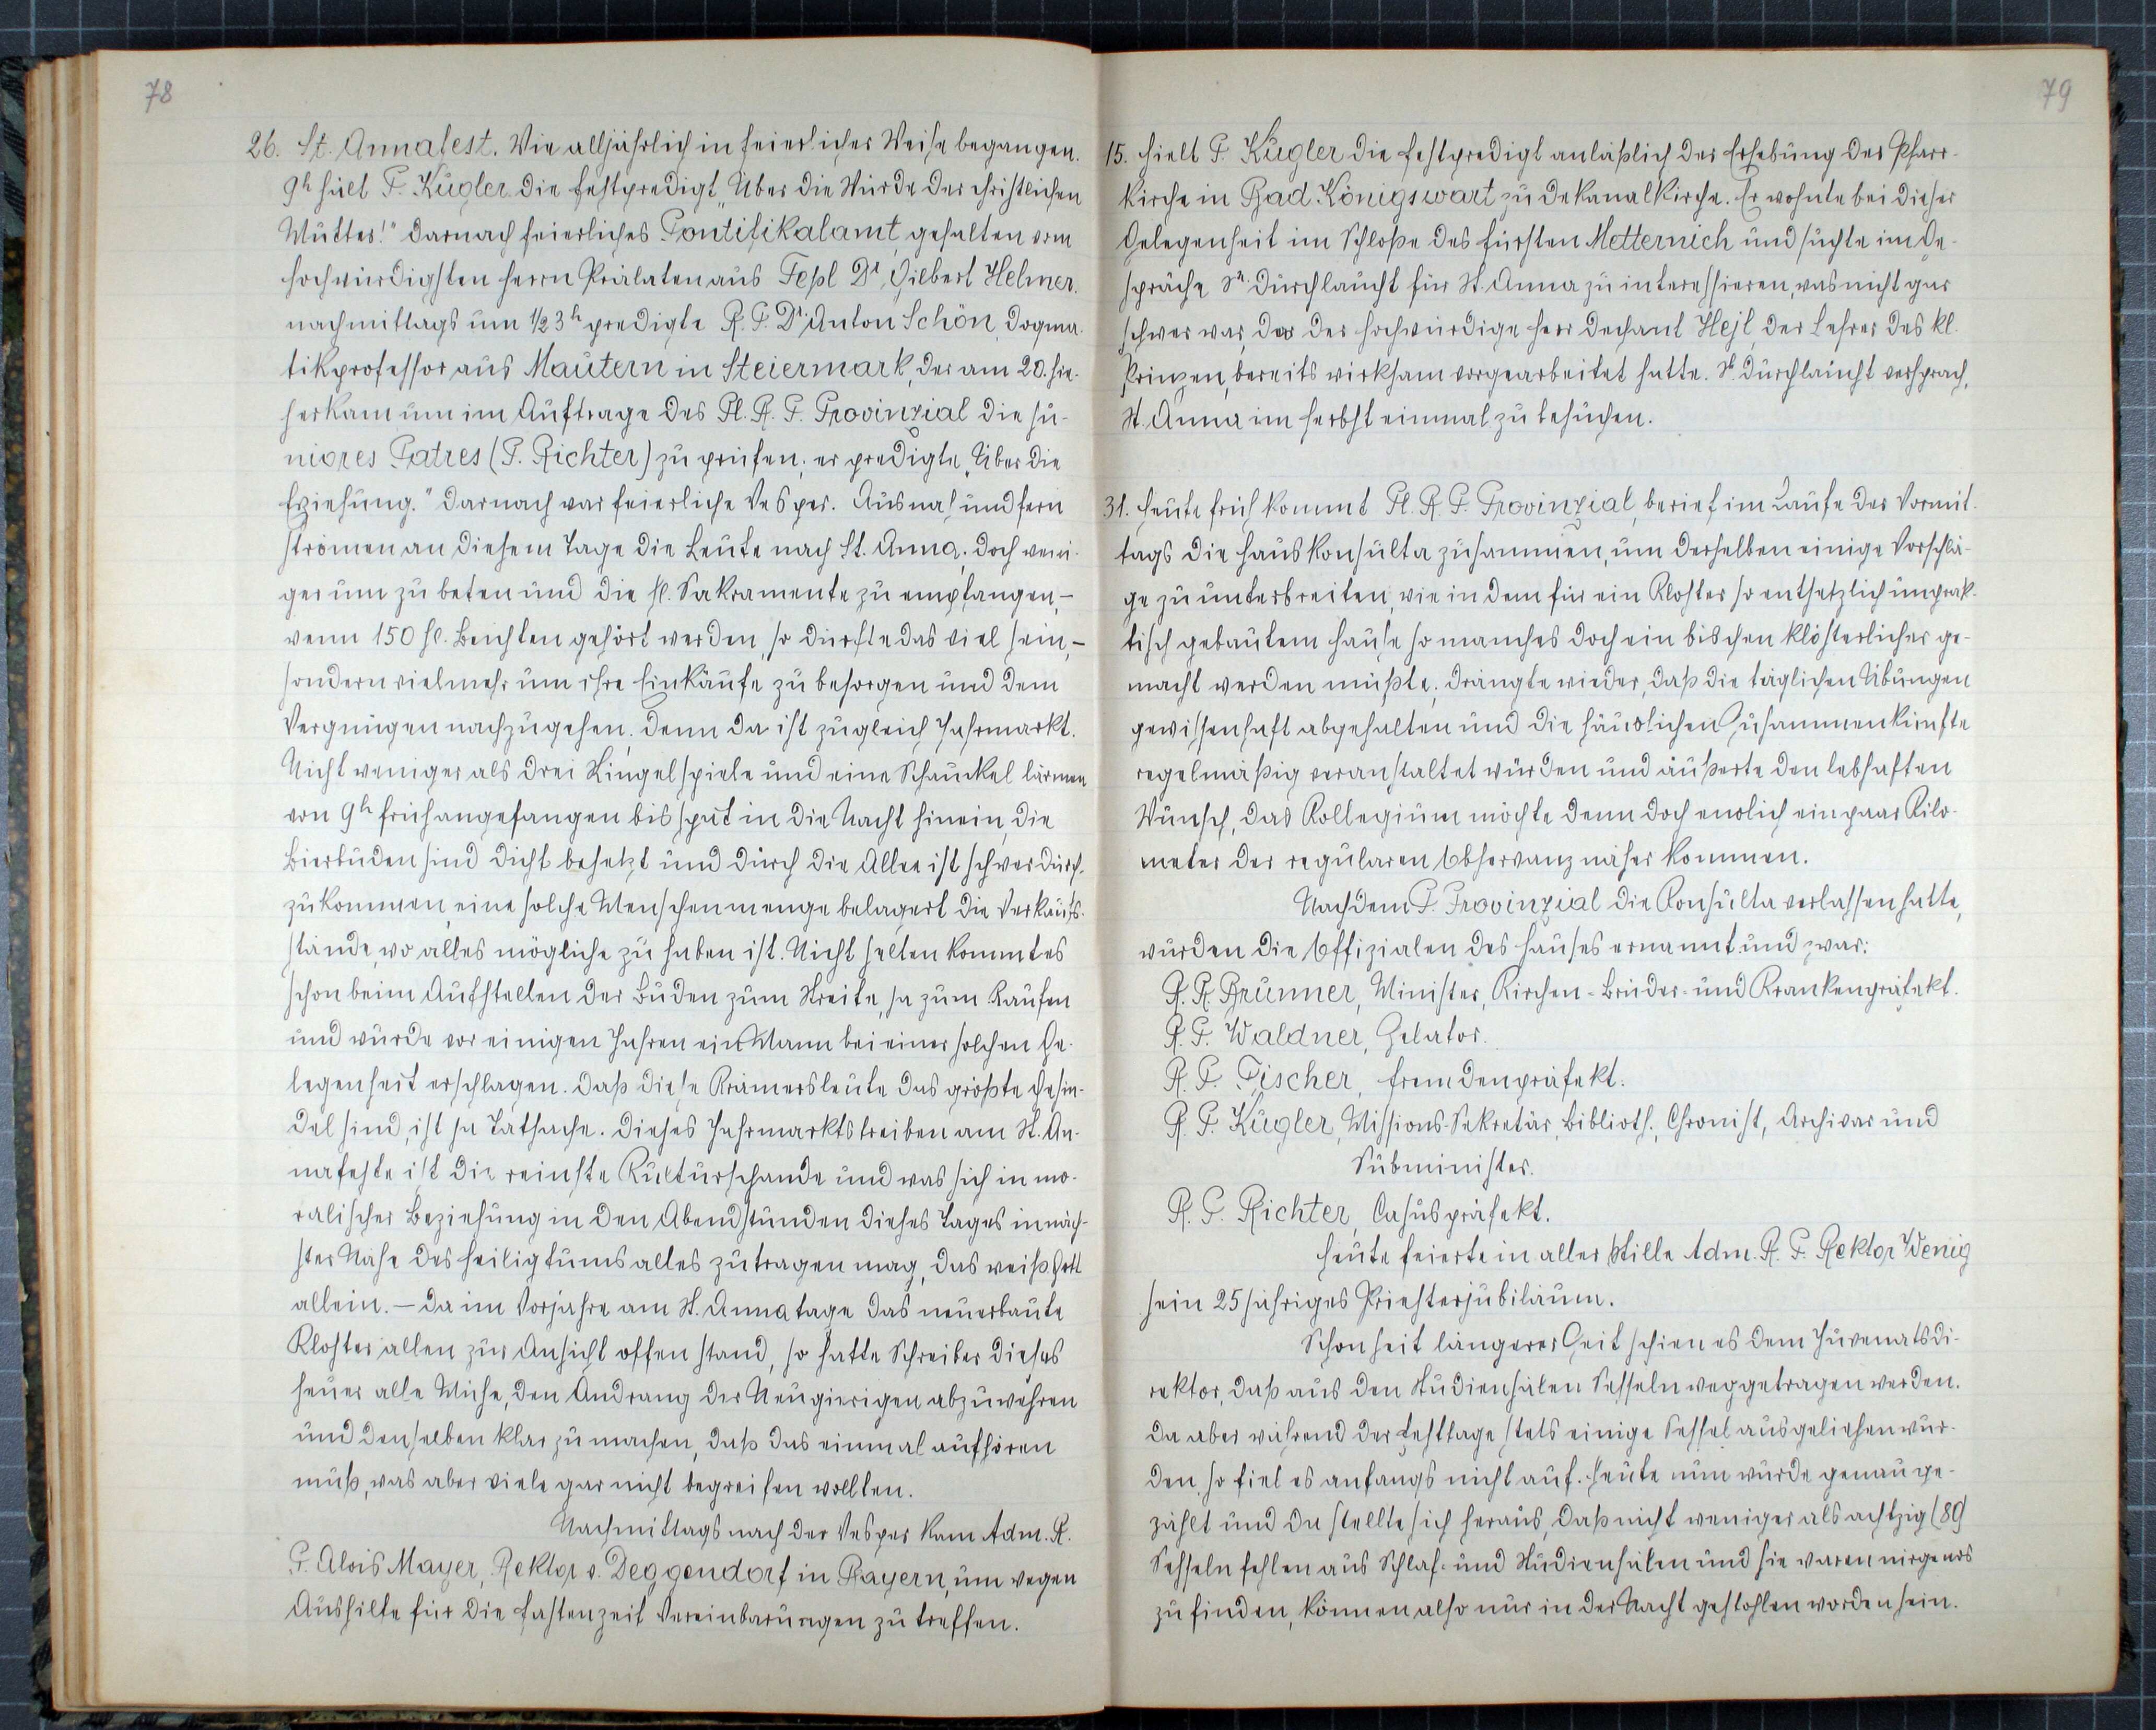 78
26. St. Annafest. Wie alljährlich in feierlicher Weise begangen.
9h hielt P. Kugler die Festpredigt „Über die Würde der christlichen
Mutter!" Darnach feierliches Pontifikalamt, gehalten vom
hochwürdigsten Herrn Prälaten aus Tepl Dr. Gilbert Helmer.
nachmittags um ½3h predigte R. P. Dr. Anton Schön, Dogma-
tikprofessor aus Mautern in Steiermark, der am 20. hie-
herkam um im Auftrage des Pl. R. P. Provinzial die Ju-
niores Patres (P. Richter) zu prüfen; er predigte „Über die
Erziehung." Darnach war feierliche Vesper. Aus nah und fern
strömen an diesem Tage die Leute nach St. Anna; doch weni-
ger um zu beten und die hl. Sakramente zu empfangen, –
wenn 150 hl. Beichten gehört werden, so dürfte das viel sein, –
sondern vielmehr um ihre Einkäufe zu besorgen und dem
Vergnügen nachzugehen, denn da ist zugleich Jahrmarkt.
Nicht weniger als drei Ringelspiele und eine Schaukel lärmen
von 9h früh angefangen bis spät in die Nacht hinein, die
Bierbuden sind dicht besetzt und durch die Allee ist schwer durch-
zukommen, eine solche Menschenmenge belagert die Verkaufs-
stände, wo alles mögliche zu haben ist. Nicht selten kommt es
schon beim Aufstellen der Buden zum Streite, ja zum Raufen
und wurde vor einigen Jahren ein Mann bei einer solchen Ge-
legenheit erschlagen. Daß diese Krämersleute das größte Gesin-
del sind, ist ja Tatsache. Dieses Jahrmarktstreiben am St. An-
nafeste ist die reinste Kulturschande und was sich in mo-
ralischer Beziehung in den Abendstunden dieses Tages in näch-
ster Nähe des Heiligtums alles zutragen mag, das weiß Gott
allein. – Da im Vorjahre am St. Annatage das neuerbaute
Kloster allen zur Ansicht offen stand, so hatte Schreiber dieses
heuer alle Mühe, den Andrang der Neugierigen abzuwehren
und denselben klar zu machen, daß das einmal aufhören
muß, was aber viele gar nicht begreifen wollten.
Nachmittags nach der Vesper kam Adm. R.
P. Alois Mayer, Rektor v. Deggendorf in Bayern, um wegen
Aushilfe für die Fastenzeit Vereinbarungen zu treffen.
79
15. hielt P. Kugler die Festpredigt anläßlich der Erhebung der Pfarr-
kirche in Bad Königswart zu Dekanalkirche. Er wohnte bei dieser
Gelegenheit im Schloße des Fürsten Metternich und suchte im Ge-
spräche Sr. Durchlaucht für St. Anna zu interessieren, was nicht gar
schwer war, da der hochwürdige Herr Dechant Hejl, der Lehrer des kl.
Prinzen, bereits wirksam vorgearbeitet hatte. Sr. Durchlaucht versprach,
St. Anna im Herbst einmal zu besuchen.
31. Heute früh kommt Pl. R. P. Provinzial, berief im Laufe des Vormit-
tags die Hauskonsulta zusammen, um derselben einige Vorschlä-
ge zu unterbreiten, wie in dem für ein Kloster so entsetzlich unprak-
tisch gebautem Hause so manches doch ein bischen klösterlicher ge-
macht werden müßte; drängte wieder, daß die täglichen Übungen
gewissenhaft abgehalten und die häuslichen Zusammenkünfte
regelmäßig veranstaltet würden und äußerte den lebhaften
Wunsch, das Kollegium möchte denn doch endlich ein paar Kilo-
meter der regulären Observanz näher kommen.
Nachdem P. Provinzial die Konsulta verlassen hatte,
wurden die Offizialen des Hauses ernannt und zwar:
R. P. Brunner, Minister, Kirchen- Brüder- und Krankenpräfekt.
R. P. Waldner, Zelator.
R. P. Fischer, Fremdenpräfekt.
R. P. Kugler, Missions-Sekretär, Biblioth., Chronist, Archivar und
Subminister.
R. P. Richter, Casuspräfekt.
Heute feierte in aller Stille Adm. R. P. Rektor Wenig
sein 25 jähriges Priesterjubiläum.
Schon seit längerer Zeit schien es dem Juvenatsdi-
rektor, daß aus den Studiensälen Sesseln weggetragen werden.
Da aber während der Festtage stets einige Sessel ausgeliehen wur-
den, so fiel es anfangs nicht auf. Heute nun wurde genau ge-
zählt und da stellte sich heraus, daß nicht weniger als achtzig (80)
Sesseln fehlen aus Schlaf- und Studiensälen und sie waren nirgends
zu finden, können also nur in der Nacht gestohlen worden sein.